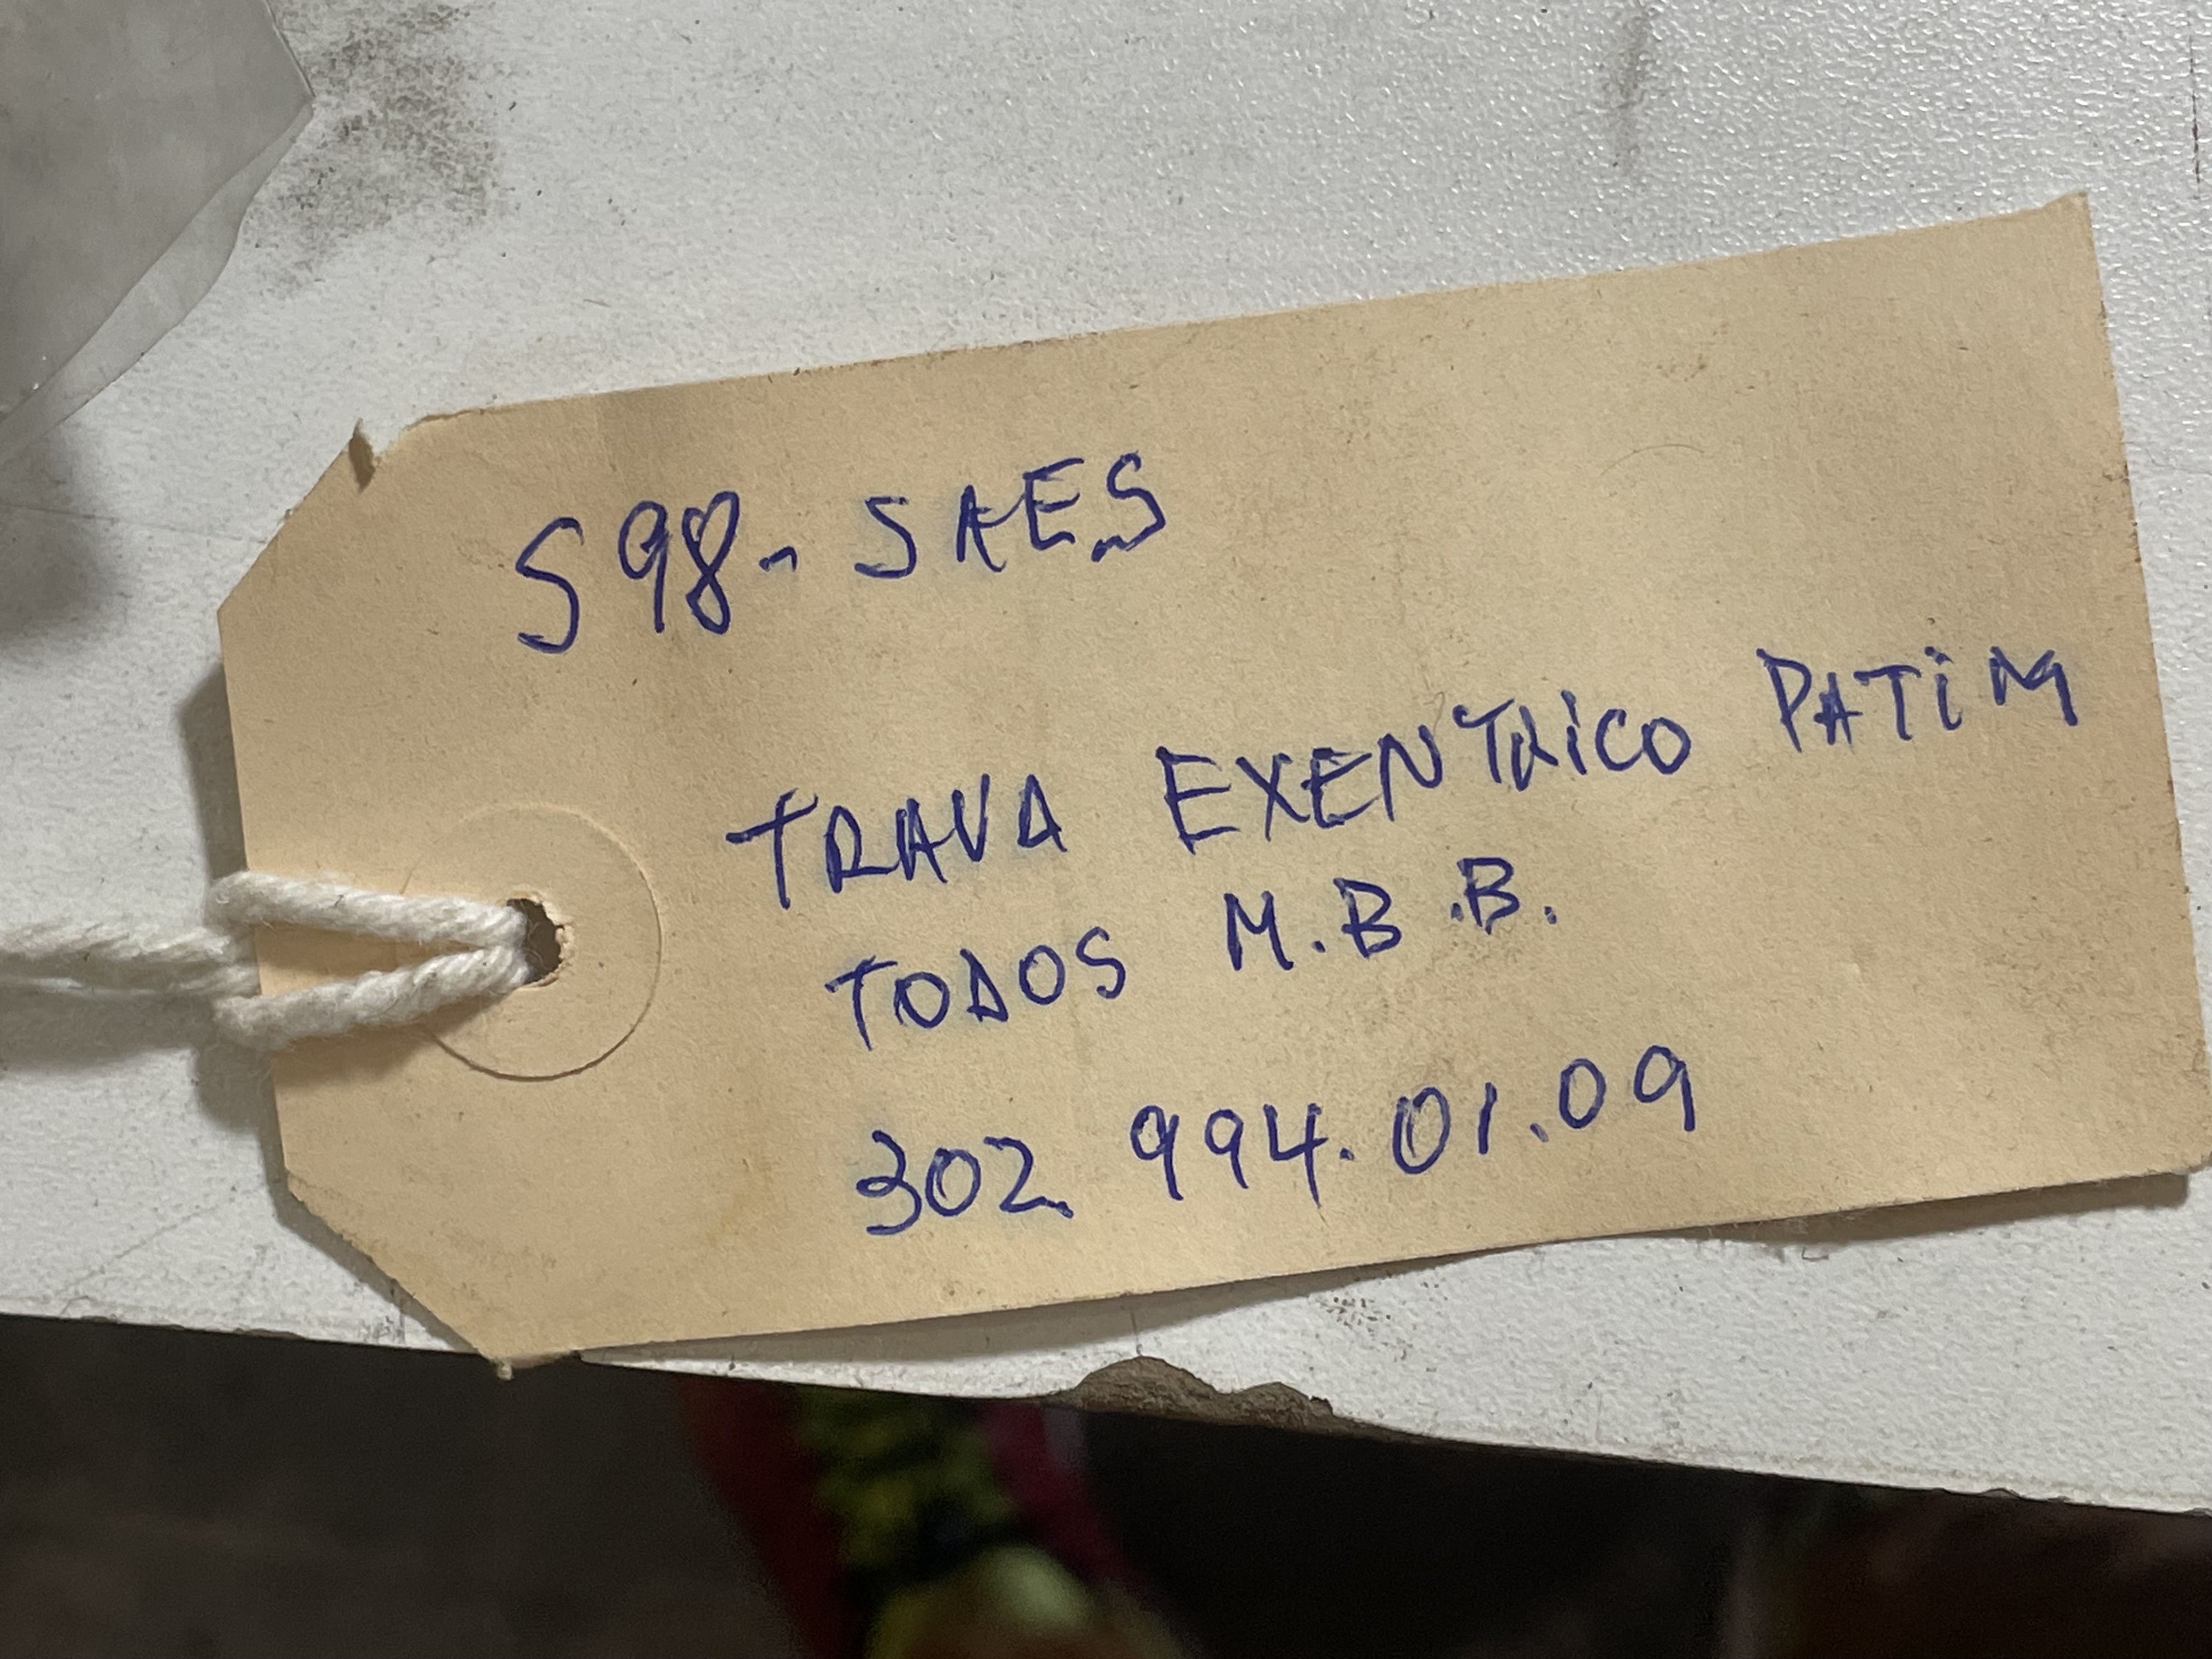 S98 - SAES
TRAVA EXENTRICO PATIM
TODOS M.B.B.
302 994.01.09